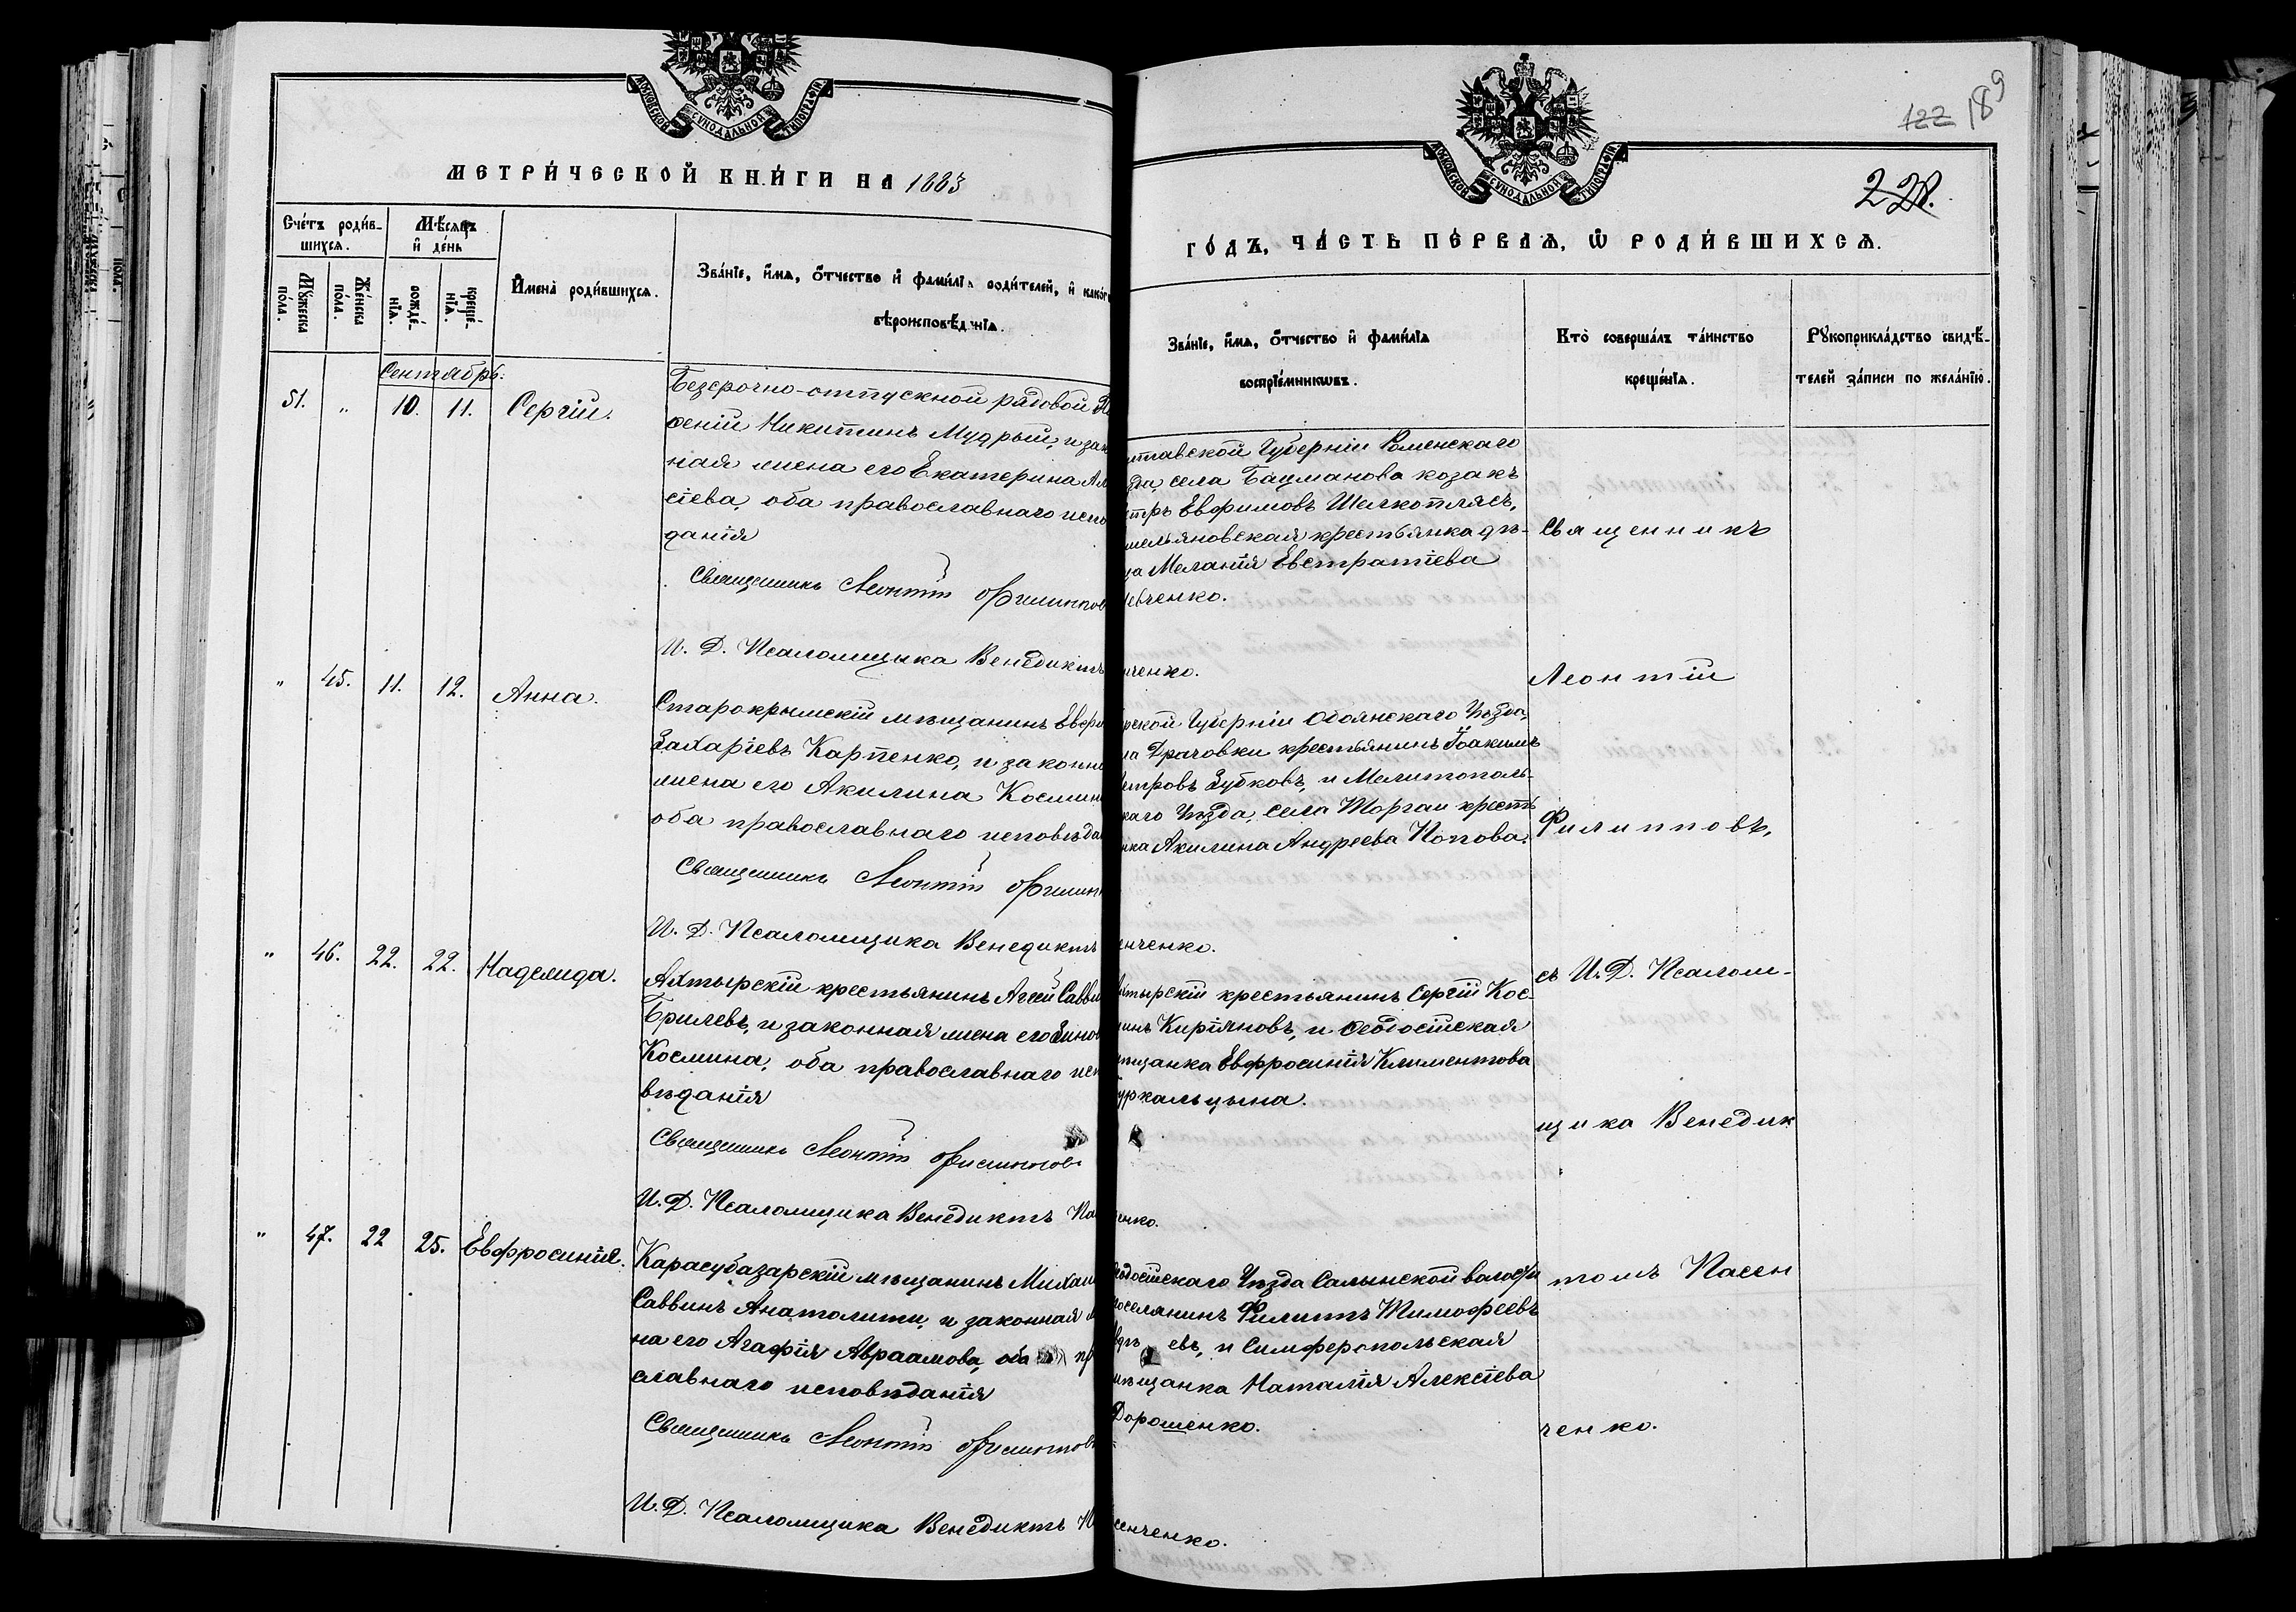 МОСКОВСКОЙ СУНОДАЛЬНОЙ ТИПОГРАФІИ
МЕТРИЧЕСКОЙ КНИГИ НА 1883
Счетъ родив-
шихся.
Мѣсяцъ
и день
Мужеска
пола.
Женска
пола.
рожде-
нія.
креще-
нія.
Имена родившихся.
Званіе, имя, отчество и фамилія родителей, и како
вѣроисповѣданія.
Сентябрь.
51. " 10. 11. Сергій.
Безсрочно-отпускной рядовой
сеній Никитинъ Мудрый, и зак
ная жена его Екатерина Ал
сіева, оба православнаго испо
данія
Священникъ Леонтій Филиппов
И. Д. Псаломщика Венедиктъ
" 45. 11. 12. Анна.
Старокрымскій мѣщанинъ Евфр
Захаріевъ Карпенко, и законн
жена его Акилина Космин
оба православнаго исповѣда
Священникъ Леонтій Филип
И. Д. Псаломщика Венедиктъ
" 46. 22. 22. Надежда.
Ахтырскій крестьянинъ Агей Савви
Брилевъ, и законная жена его Зинов
Космина, оба православнаго исп
вѣданія
Священникъ Леонтій Филиппов
И. Д. Псаломщика Венедиктъ Па
" 47. 22 25. Евфросинія.
Карасубазарскій мѣщанинъ Михаи
Саввинъ Анатолити, и законная ж
на его Агафія Авраамова, оба пр
славнаго исповѣданія
Священникъ Леонтій Филиппов
И. Д. Псаломщика Венедиктъ П
МОСКОВСКОЙ СУНОДАЛЬНОЙ ТИПОГРАФІИ
122 189
228.
ГОДЪ, ЧАСТЬ ПЕРВАЯ, Ѡ РОДИВШИХСЯ.
Званіе, имя, отчество и фамилія
воспріемниковъ.
Кто совершалъ таинство
крещенія.
Рукоприкладство свидѣ-
телей записи по желанію.
тавской Губерніи Роменскаго
зда, села Бацманова козакъ
тръ Евфимовъ Шелкоплясъ,
мельяновская крестьянка дѣ-
ца Меланія Евстратіева
евченко.
нченко.
рской Губерніи Обоянскаго Уѣзда,
ла Драчовки крестьянинъ Іоакимъ
етровъ Зубковъ, и Мелитополь-
каго Уѣзда, села Торгаи крестъ
нка Акилина Андреева Попова.
енченко.
хтырскій крестьянинъ Сергій Кос-
инъ Киріяновъ, и Ѳеодосійская
ѣщанка Евфросинія Климентова
уркальцына.
енко.
еодосійскаго Уѣзда Салынской волости
поселянинъ Филиппъ Тимофеевъ
евъ, и Симферопольская
мѣщанка Наталія Алексіева
Дорошенко.
сенченко.
Священникъ
Леонтій
Филипповъ,
съ И. Д. Псалом-
щика Венедик
томъ Пасен
ченко.